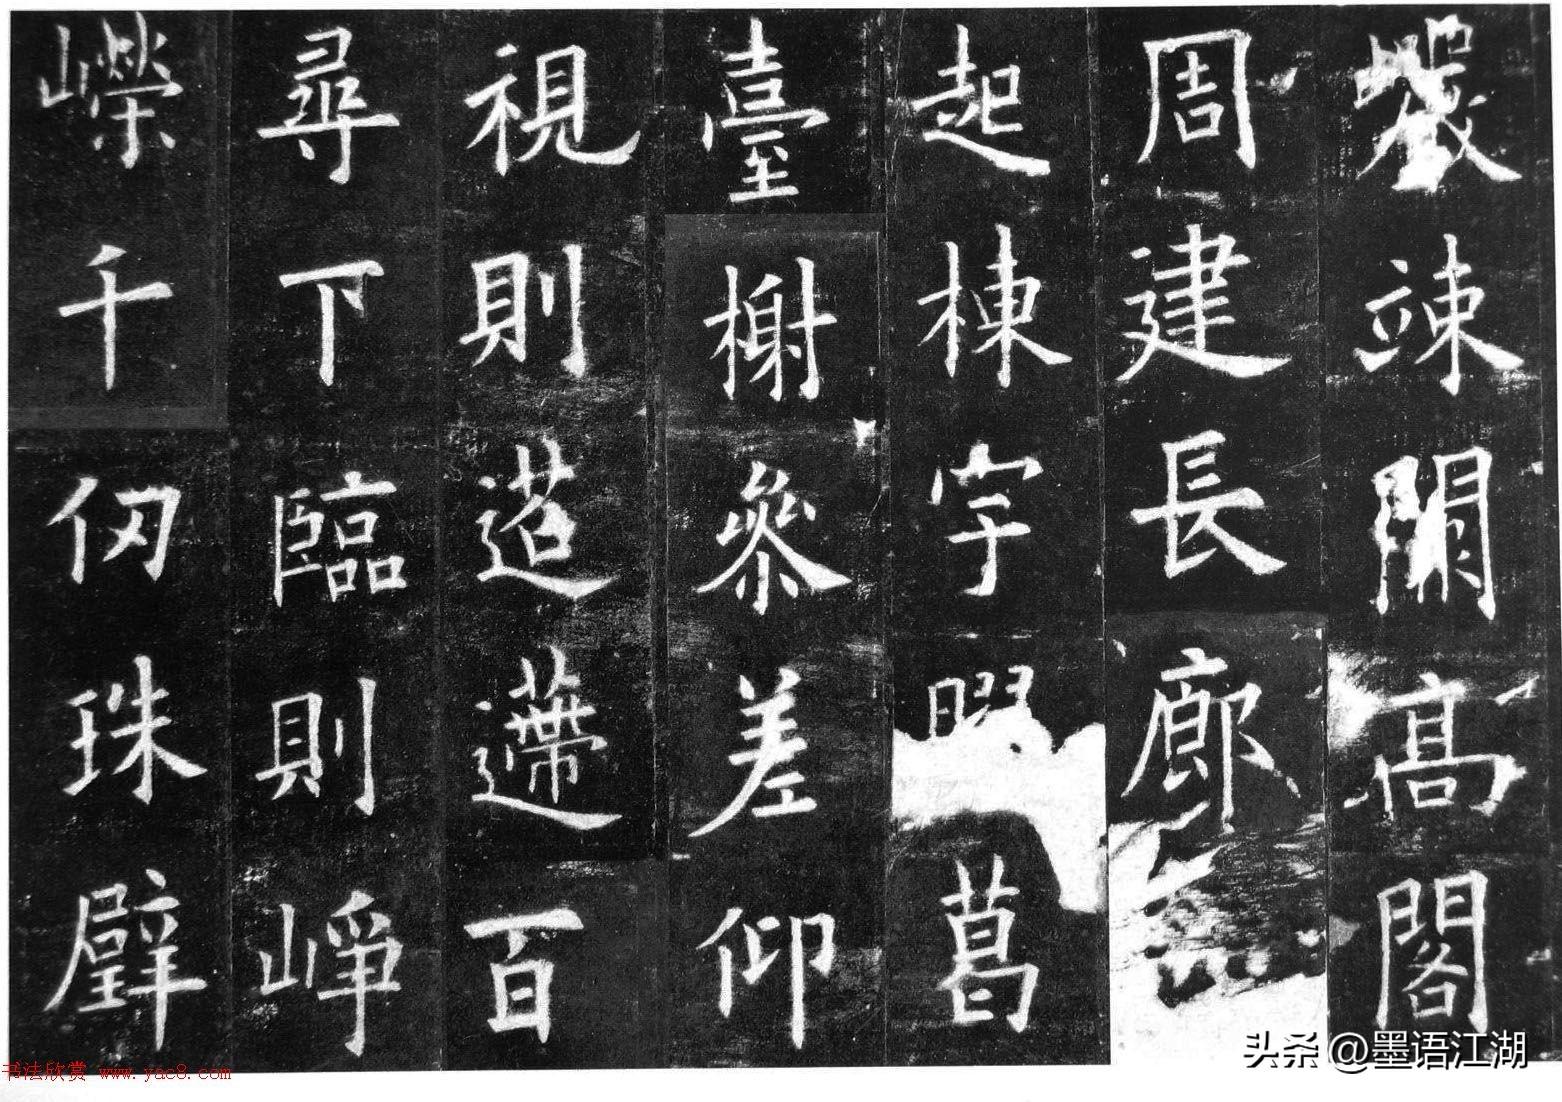 巖竦闕高閣
周建長廊
起棟宇葛
臺榭參差仰
視則迢遰百
尋下臨則崢
嶸千仞珠璧
头条 @墨语江湖
书法欣赏 www.yac8.com